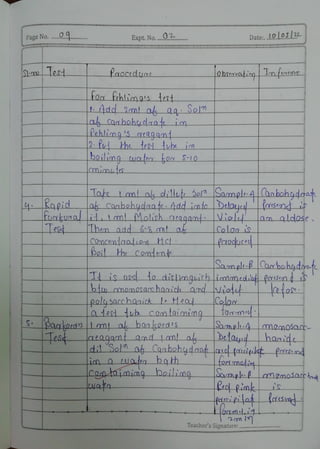 Page No. 09 Expt. No. 02 Date: 10/05/22
Sl.no Test Procedure Observation Inference
For Fehling's test
1. Add 2ml of aq. Solⁿ
of carbohydrate in
Fehling's reagent
2. Put the test tube in
boiling water for 5-10
minutes
Take 1 ml of dilute Solⁿ Sample-A Carbohydrate
4. Rapid of carbohydrate. Add into Delayed present is
Furfural it, 1 ml Molish reagent. Violet an aldose.
Test Then add 6-8 ml of Color is
Concentration HCl. produced
Boil the content
Sample-B Carbohydrate
It is used to distinguish immediate present is
btw monosaccharide and Violet
polysaccharide. Color
a test tube containing formed.
5. Barford's 1 ml of barford's Sample-A monosacc-
Test reagent and 1 ml of Delayed haride
dil Solⁿ of Carbohydrate present
in a water bath formation
containing boiling Sample-B monosaccha
water Red pink is
present
2 min
Teacher's Signature: